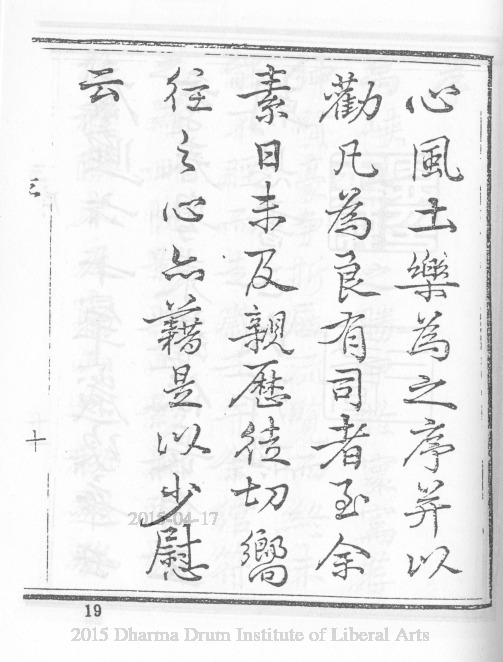 心風土樂為之序并以
勸凡為良有司者至余
素日未及親歷徒切嚮
往之心亦藉是以少慰
云
三
十
2015-04-17
19
2015 Dharma Drum Institute of Liberal Arts